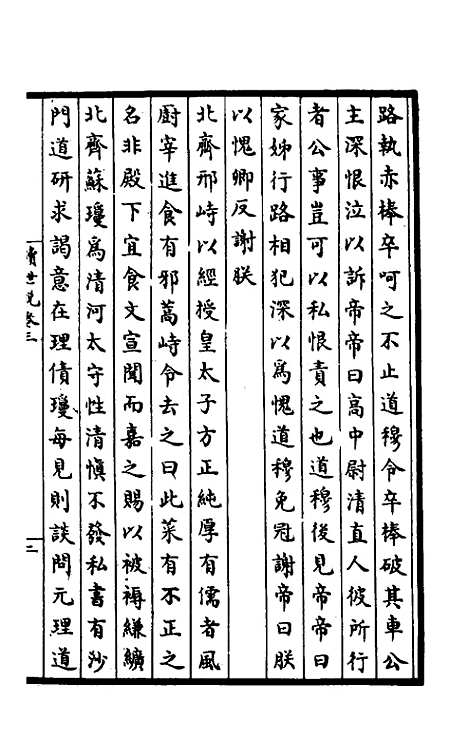 路執赤棒卒呵之不止道穆令卒棒破其車公
主深恨泣以訴帝帝曰高中尉清直人彼所行
者公事豈可以私恨責之也道穆後見帝帝曰
家姊行路相犯深以爲愧道穆免冠謝帝曰朕
以愧卿反謝朕
北齊邢峙以經授皇太子方正純厚有儒者風
廚宰進食有邪蒿峙令去之曰此菜有不正之
名非殿下宜食文宣聞而嘉之賜以被褥縑纊
北齊蘇瓊爲清河太守性清慎不發私書有沙
門道研求謁意在理債瓊每見則談問元理道
續世說卷三
三